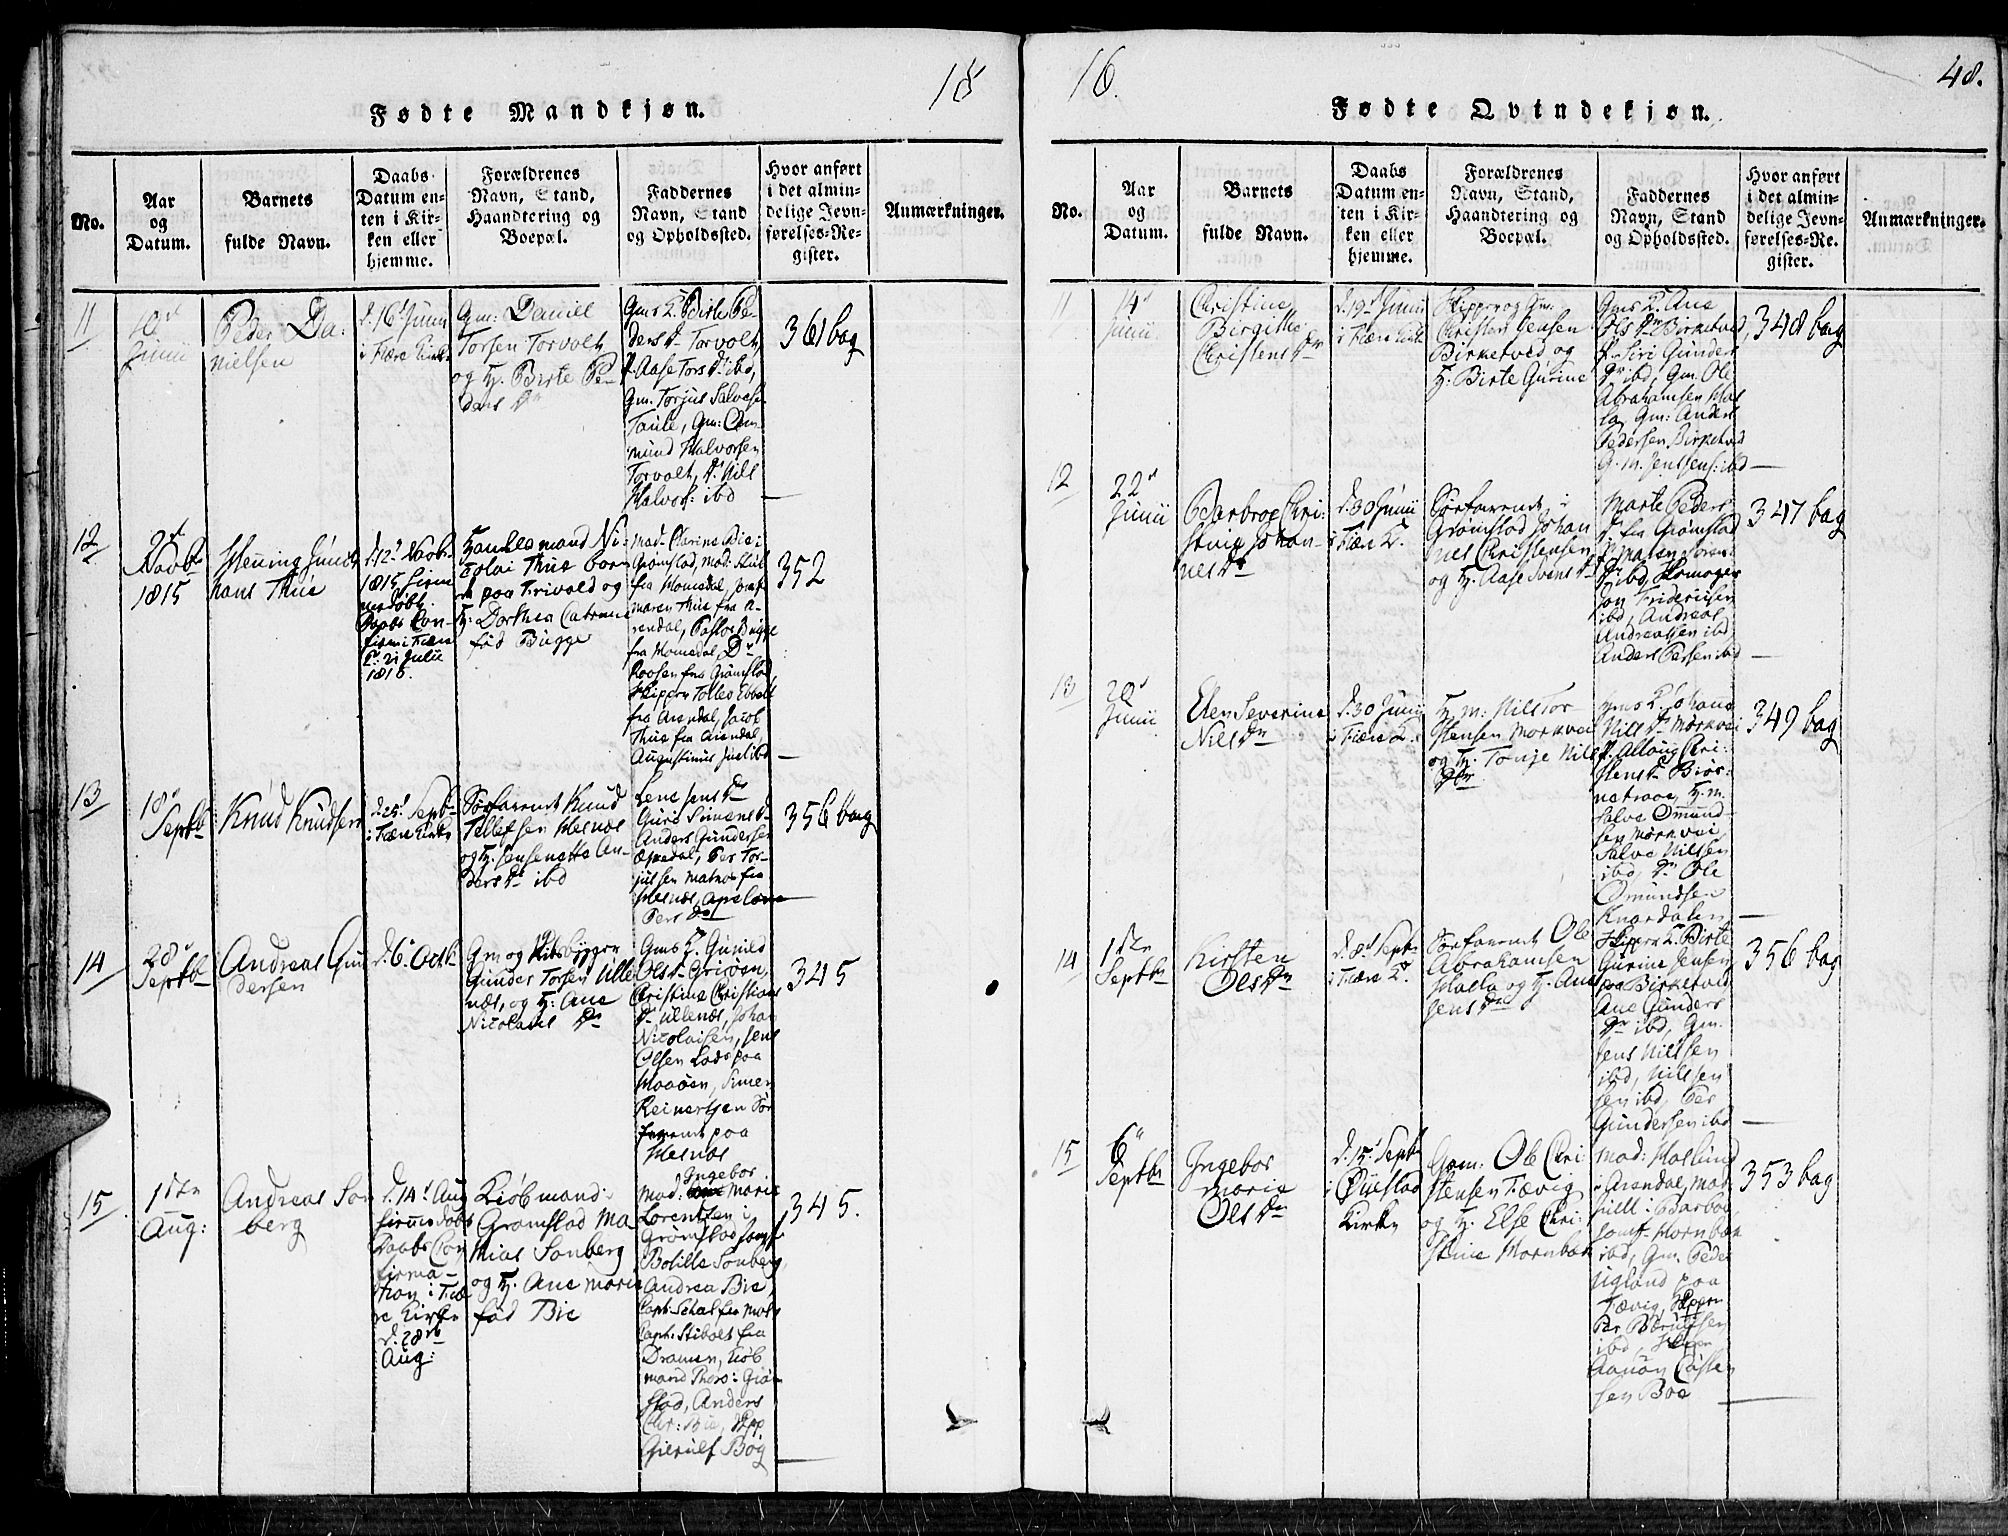 18
Fødte Mandkjøn.
No.
Aar
og
Datum.
Barnets
fulde Navn.
Daabs-
Datum en-
ten i Kir-
ken eller
hjemme.
Forældrenes
Navn, Stand,
Haandtering og
Boepæl.
Faddernes
Navn, Stand
og Opholdssted.
Hvor anført
i det almin-
delige Jevn-
førelses-Re-
gister.
Anmærkninger.
11
Junii
Peder Da:
nielsen
d. 16 Junii
i Fiære Kirke
Gm: Daniel
Torsen Torvolt
og H. Birte Pe-
ders Dr
Gms K. Birte Pe-
ders Dr Torvolt,
P. Aase Tors Dr ibd,
Gm. Torjus Salves:
Taule, Gm: Om-
mund Halvorsen
Torvolt, Nils
Halvors: ibd
361 bag
12
2d
Novbr
1815
Henning Junck
hans Thue
d. 12 Novbr
1815 hiem-
medøbt.
Daabs Con-
firm i Fiære
K. 21 Julii
1816.
Handelsmand Ni-
colai Thue boen-
de paa Frivold og
H. Dorthea Catrina
fød Bugge
Mad: Carine Bie i
Grømstad,
fra Homedal,
Maren Thue fra A-
rendal, Pastor Bugge
fra Homedal, Dr
Roosen fra Grømstad,
Skipper Tolles Ebbell
fra Arendal, Jacob
Thue fra Arendal,
Augustinus Juel ibd
352
13
18
Septbr
Knud Knudsen
d. 25 Septbr
i Fiære Kirke
Søefarende Knud
Tellefsen Hesnæs
og H. Jensenette An-
ders Dr ibd
Lene Jens Dr
Guri Simens D.
Anders Gundersen
Per Tor-
julsen Matros fra
Hesnæs, Apelone
Pers Dr
356 bag
14
28
Septbr
Andreas Gun
dersen
d. 6 Octb.
Gm og Skibsbygger
Gunder Torsen Ulle
næs, og H. Ane
Nicolai Dr
Gms H. Gunild
Ols Dr Grisøen,
Cristine Christians
Dr Ullenæs, Johan
Nicolaisen, Jens
Olsen Lods paa
Maaøen, Simen
Reinertsen Søe
farende paa
Hesnæs
345
15
1ste
Aug:
Andreas Son
berg
d. 14 Aug
hiemdøbt
Daabs Con
firma-
tion i Fiæ
re Kirke
d. 28de
Aug:
Kiøbmand i
Grømstad Ma-
thias Sonberg
og H. Ane Marie
fød Bie
Ingebor
Mad: Marie
Lorentzen i
Grømstad,
Bolille Sonberg,
Andrea Bie,
Capt: Stibolt fra
Dramen, Kiøb
mand Thors: Grøm
stad, Anders
Chr: Bie, Skipp
Gierulf Bog
345.
16.
48.
Fødte Qvindekjøn.
No.
Aar
og
Datum.
Barnets
fulde Navn.
Daabs
Datum en-
ten i Kir-
ken eller
hjemme.
Forældrenes
Navn, Stand,
Haandtering og
Boepæl.
Faddernes
Navn, Stand
og Opholdssted.
Hvor anført
i det almin-
delige Jevn-
førelses-Re-
gister.
Anmærkninger.
11
14
Junii
Christine
Birgitte
Christens Dr
d. 19 Junii
i Fiære Kirke
Skipper og Gm:
Christen Jensen
Birketved og
H. Birte Gurine
Gms K. Ane
Ols Dr Birketved,
P. Siri Gunders
Dr ibd, Gm Ole
Abrahamsen Has
la, Gm: Anders
Pedersen Birketved
G. M. Jens Jens: ibd
348 bag
12
22
Junii
Barbroe Chri-
stine Johan-
nes Dr
d. 30 Junii
i Fiære K.
Søefarende i
Grømstad Johan
nes Christensen
og H. Aase Svens Dr
Marte Peders
D. fra Grømstad
P. Maren Soren
Dr ibd, Skomager
Jon Fridericsen
ibd, Andreas
Andreassen ibd
Anders Persen ibd
347 bag
13
20
Junii
Elen Severine
Nils Dr
d. 30 Junii
i Fiære K.
H.m: Nils Tor
stensen Morkvei
og H. Tonje Nils
Dr
Gms K. Johane
Nils Dr Mørkvei
P. Alloug Chri-
stens D. Biør-
netraae, H.m.
Salve Omund-
sen Mørkvei,
Salve Nilsen
ibd, Dr Ole
Omundsen
Knardalen
349 bag
14
1ste
Septbr
Kirsten
Ols Dr
d. 8 Septb
i Fiære K.
Søefarende Ole
Abrahamsen
Hasla og H. Ane
Jens Dr
Skippers K. Birte
Gurine Jensen
paa Birketved,
Ane Gunders
Dr ibd, Gm.
Jens Nilssen
ibd, Nils Jen
sen ibd, Per
Gundersen ibd
356 bag
15
6
Septbr
Ingebor
Marie
Ols Dr
d. 15 Septbr
i Øiestad
Kirke
Gm: Ole Chri
stensen Fævig
og H. Else Chri-
stine Mornbek
Mad: Haslund
i Arendal, Mad
sielle: Barbro
Jomf: Mornbek
ibd, Gm. Peder
Ugland paa
Fævig, Skipper
Per Børuldsen
ibd, Skipper
Aanon Cassen
sen Boe
353 bag